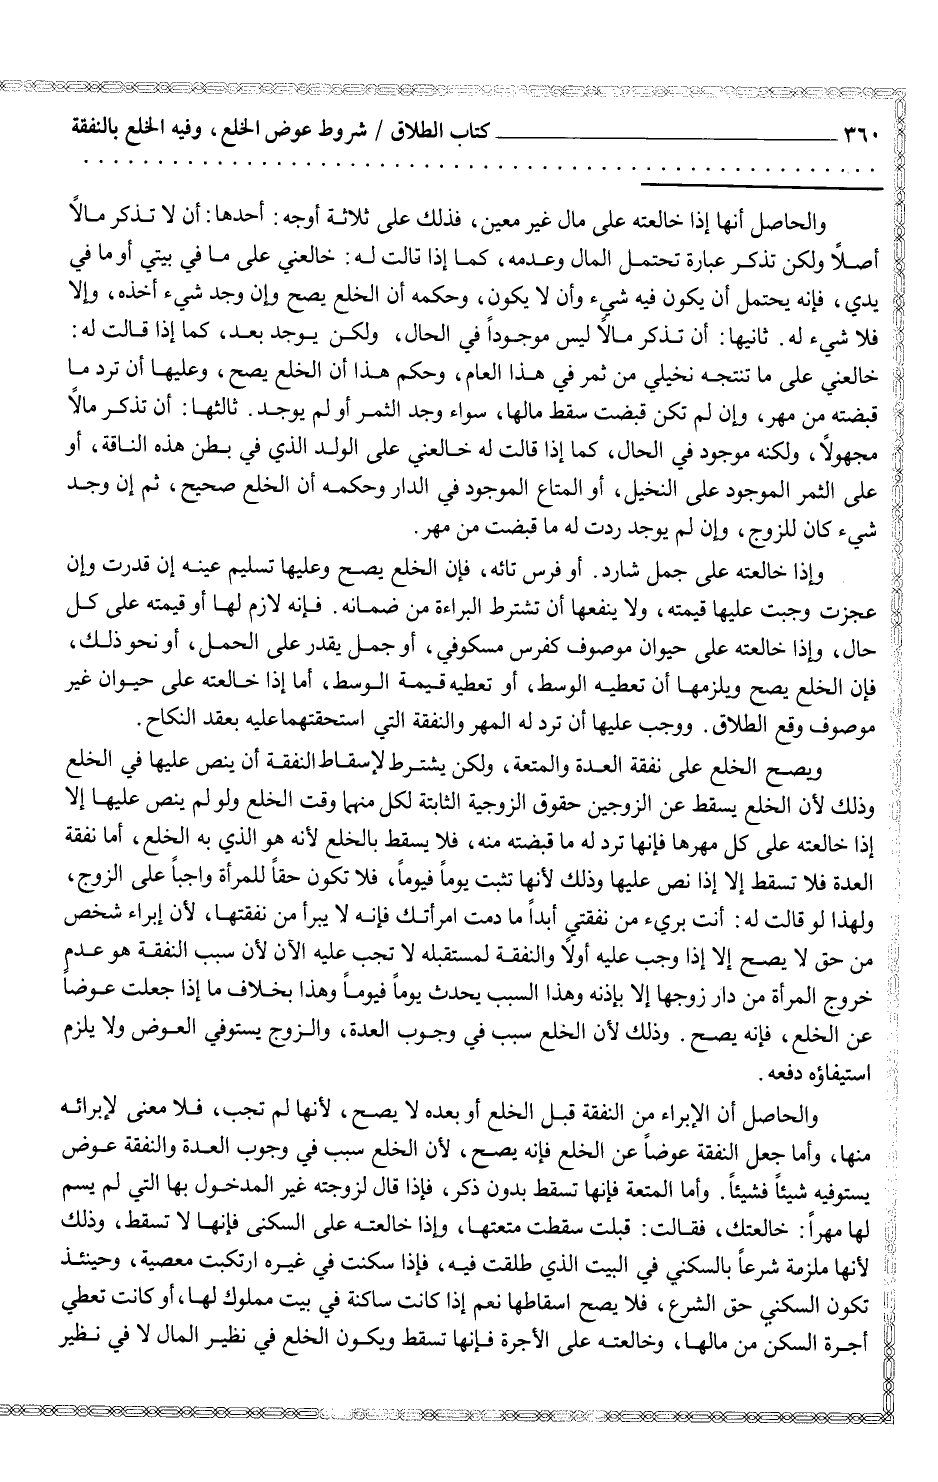 ٣٦٠ ــــــــــــــــــــ كتاب الطلاق / شروط عوض الخلع، وفيه الخلع بالنفقة
. . . . . . . . . . . . . . . . . . . . . . . . . . . . . . . . . . . . . . . . . . . .
والحاصل أنها إذا خالعته على مال غير معين، فذلك على ثلاثة أوجه: أحدها: أن لا تذكر مالاً
أصلاً ولكن تذكر عبارة تحتمل المال وعدمه، كما إذا تالت له: خالعني على ما في بيتي أو ما في
يدي، فإنه يحتمل أن يكون فيه شيء وأن لا يكون، وحكمه أن الخلع يصح وإن وجد شيء أخذه، وإلا
فلا شيء له. ثانيها: أن تذكر مالاً ليس موجوداً في الحال، ولكن يوجد بعد، كما إذا قالت له:
خالعني على ما تنتجه نخيلي من ثمر في هذا العام، وحكم هذا أن الخلع يصح، وعليها أن ترد ما
قبضته من مهر، وإن لم تكن قبضت سقط مالها، سواء وجد الثمر أو لم يوجد. ثالثها: أن تذكر مالاً
مجهولاً، ولكنه موجود في الحال، كما إذا قالت له خالعني على الولد الذي في بطن هذه الناقة، أو
على الثمر الموجود على النخيل، أو المتاع الموجود في الدار وحكمه أن الخلع صحيح، ثم إن وجد
شيء كان للزوج، وإن لم يوجد ردت له ما قبضت من مهر.
وإذا خالعته على جمل شارد. أو فرس تائه، فإن الخلع يصح وعليها تسليم عينه إن قدرت وإن
عجزت وجبت عليها قيمته، ولا ينفعها أن تشترط البراءة من ضمانه. فإنه لازم لها أو قيمته على كل
حال، وإذا خالعته على حيوان موصوف كفرس مسكوفي، أو جمل يقدر على الحمل، أو نحو ذلك،
فإن الخلع يصح ويلزمها أن تعطيه الوسط، أو تعطيه قيمة الوسط، أما إذا خالعته على حيوان غير
موصوف وقع الطلاق. ووجب عليها أن ترد له المهر والنفقة التي استحقتهما عليه بعقد النكاح.
ويصح الخلع على نفقة العدة والمتعة، ولكن يشترط لإسقاط النفقة أن ينص عليها في الخلع
وذلك لأن الخلع يسقط عن الزوجين حقوق الزوجية الثابتة لكل منهما وقت الخلع ولو لم ينص عليها إلا
إذا خالعته على كل مهرها فإنها ترد له ما قبضته منه، فلا يسقط بالخلع لأنه هو الذي به الخلع، أما نفقة
العدة فلا تسقط إلا إذا نص عليها وذلك لأنها تثبت يوماً فيوماً، فلا تكون حقاً للمرأة واجباً على الزوج،
ولهذا لو قالت له: أنت بريء من نفقتي أبداً ما دمت امرأتك فإنه لا يبرأ من نفقتها، لأن إبراء شخص
من حق لا يصح إلا إذا وجب عليه أولاً والنفقة لمستقبله لا تجب عليه الآن لأن سبب النفقة هو عدم
خروج المرأة من دار زوجها إلا بإذنه وهذا السبب يحدث يوماً فيوماً وهذا بخلاف ما إذا جعلت عوضاً
عن الخلع، فإنه يصح. وذلك لأن الخلع سبب في وجوب العدة، والزوج يستوفي العوض ولا يلزم
استيفاؤه دفعه.
والحاصل أن الإبراء من النفقة قبل الخلع أو بعده لا يصح، لأنها لم تجب، فلا معنى لإبرائه
منها، وأما جعل النفقة عوضاً عن الخلع فإنه يصح، لأن الخلع سبب في وجوب العدة والنفقة عوض
يستوفيه شيئاً فشيئاً. وأما المتعة فإنها تسقط بدون ذكر، فإذا قال لزوجته غير المدخول بها التي لم يسم
لها مهراً: خالعتك، فقالت: قبلت سقطت متعتها، وإذا خالعته على السكنى فإنها لا تسقط، وذلك
لأنها ملزمة شرعاً بالسكني في البيت الذي طلقت فيه، فإذا سكنت في غيره ارتكبت معصية، وحينئذ
تكون السكني حق الشرع، فلا يصح اسقاطها نعم إذا كانت ساكنة في بيت مملوك لها، أو كانت تعطي
أجرة السكن من مالها، وخالعته على الأجرة فإنها تسقط ويكون الخلع في نظير المال لا في نظير